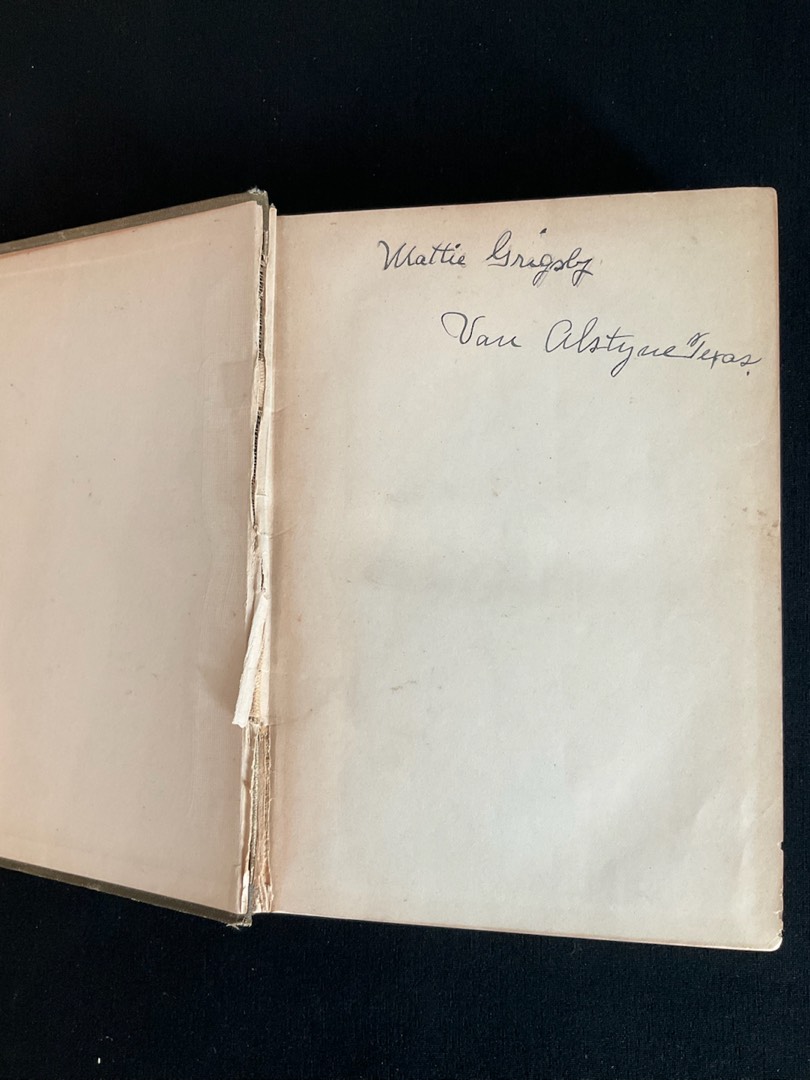 Mattie Grigsby
Van Alstyne Texas.